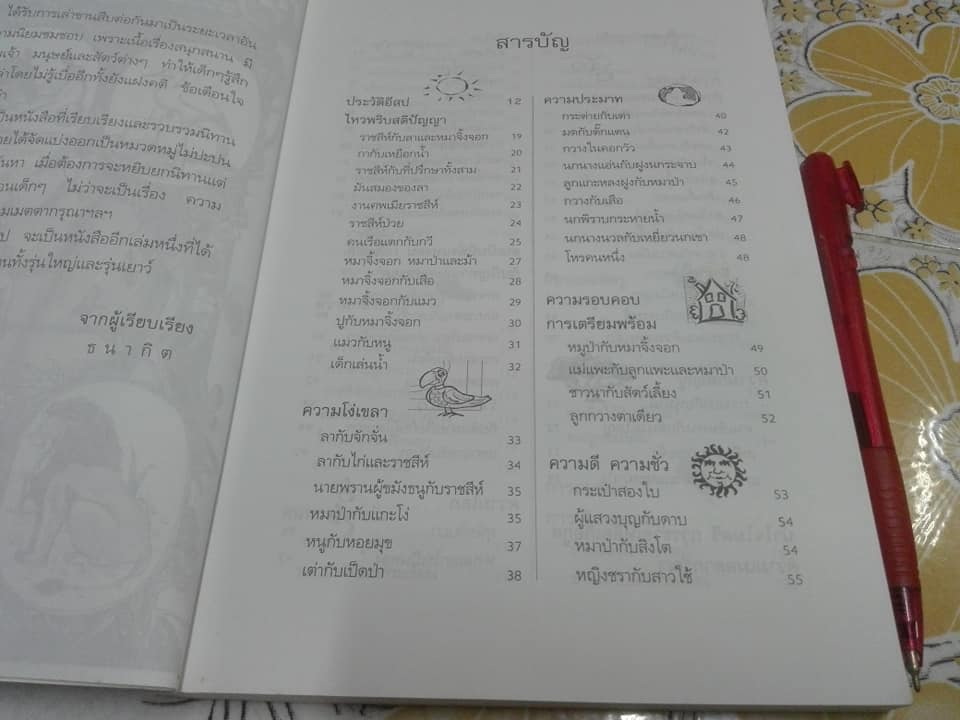 ได้รับการเล่าขานสืบต่อกันมาเป็นระยะเวลาอัน
ามนิยมชมชอบ เพราะเนื้อเรื่องสนุกสนาน มี
เจ้า มนุษย์และสัตว์ต่างๆ ทำให้เด็กๆรู้สึก
าโดยไม่รู้เบื่ออีกทั้งยังแฝงคติ ข้อเตือนใจ
ป็นหนังสือที่เรียบเรียงและรวบรวมนิทาน
ยได้จัดแบ่งออกเป็นหมวดหมู่ไม่ปะปน
ันหา เมื่อต้องการจะหยิบยกนิทานแต่
อนเด็กๆ ไม่ว่าจะเป็นเรื่อง ความ
มเมตตากรุณาฯลฯ
ป จะเป็นหนังสืออีกเล่มหนึ่งที่ได้
นทั้งรุ่นใหญ่และรุ่นเยาว์
จากผู้เรียบเรียง
ธนากิต
สารบัญ
ประวัติอีสป 12
ไหวพริบสติปัญญา
ราชสีห์กับลาและหมาจิ้งจอก 19
กากับเหยือกน้ำ 20
ราชสีห์กับที่ปรึกษาทั้งสาม 21
มันสมองของลา 22
งานศพเมียราชสีห์ 23
ราชสีห์ป่วย 24
คนเรือแตกกับกวี 25
หมาจิ้งจอก หมาป่าและม้า 27
หมาจิ้งจอกกับเสือ 28
หมาจิ้งจอกกับแมว 29
ปูกับหมาจิ้งจอก 30
แมวกับหนู 31
เด็กเล่นน้ำ 32
ความโง่เขลา
ลากับจักจั่น 33
ลากับไก่และราชสีห์ 34
นายพรานผู้ขมังธนูกับราชสีห์ 35
หมาป่ากับแกะโง่ 35
หนูกับหอยมุข 37
เต่ากับเป็ดป่า 38
ความประมาท
กระต่ายกับเต่า 40
มดกับตั๊กแตน 42
กวางในคอกวัว 43
นกนางแอ่นกับฝูงนกระจาบ 44
ลูกแกะหลงฝูงกับหมาป่า 45
กวางกับเสือ 46
นกพิราบกระหายน้ำ 47
นกนางนวลกับเหยี่ยวนกเขา 48
โหรคนหนึ่ง 48
ความรอบคอบ
การเตรียมพร้อม
หมูป่ากับหมาจิ้งจอก 49
แม่แพะกับลูกแพะและหมาป่า 50
ชาวนากับสัตว์เลี้ยง 51
ลูกกวางตาเดียว 52
ความดี ความชั่ว
กระเป๋าสองใบ 53
ผู้แสวงบุญกับดาบ 54
หมาป่ากับสิงโต 54
หญิงชรากับสาวใช้ 55